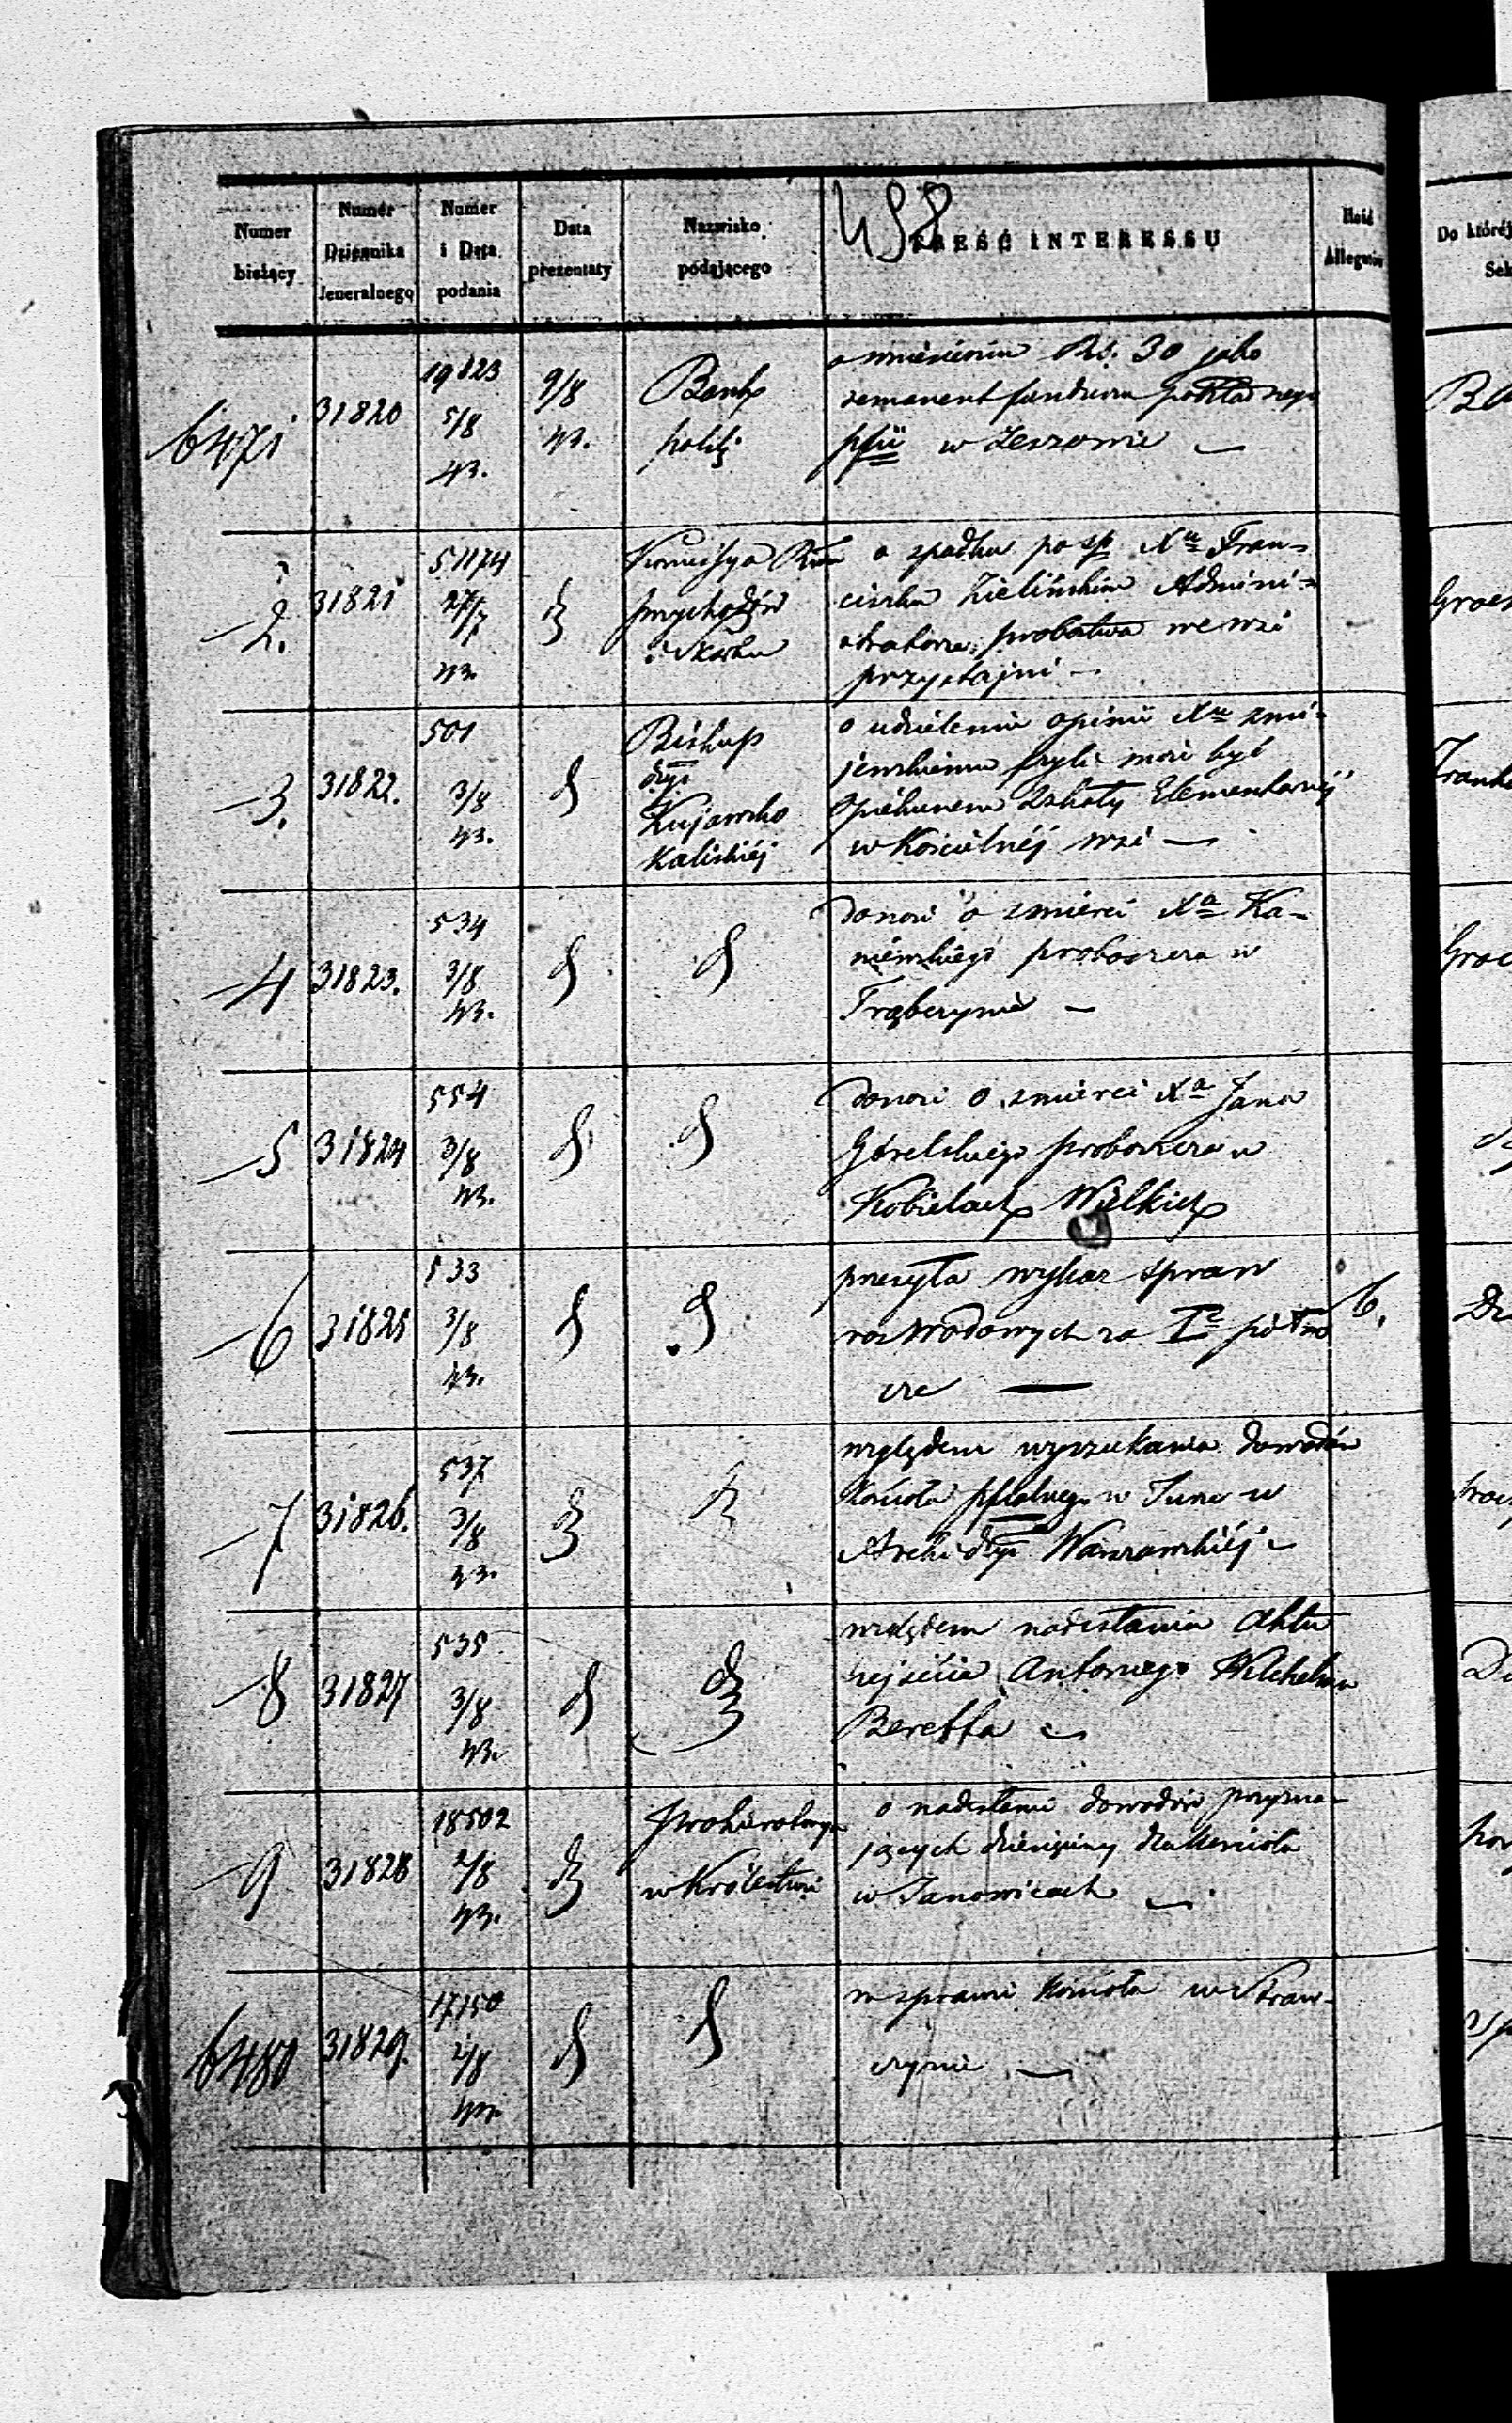 498
Numer bieżący
Numer Dziennika Jeneralnego
Numer i Data podania
Data prezentaty
Nazwisko podającego
TREŚĆ INTERESSU
Ilość Allegatów
Do któréj
6471
31820
19823
5/8
43.
9/8
43.
Bank
polski
o wniesieniu Rs. 30 jako
remanent funduszu pokładnego
w
2.
31821
51174
27/7
43.
Kommissya Rzą
przychodów
i Skarbu
o spadku po sp Xu Fran=
ciszku Zielińskim Admini=
stratorze probostwa we wsi
przystajni —
3.
31822.
501
3/8
43.
Biskup
dyi
Kujawsko
Kaliskiéj
o udzielenie opinii Xu
czyli może być
Opiekunem Szkoły Elementarnéj
w Kościelnéj wsi —
4
31823.
534
3/8
43.
donosi o śmierci Xa Ka-
mieńskiego proboszcza w
Trąbczynie —
5
31824
554
3/8
43.
donosi o śmierci Xa Jana
Górelskiego proboszcza w
Kobielach Wielkich
6
31825
533
3/8
43.
przesyła wykaz spraw
rozwodowych za Ie półro
cze —
6.
7
31826.
537
3/8
43.
względem wyszukania dowodów
Kościoła pflalnego w w
Archidyi Warszawskiéj
8
31827
535
3/8
43.
względem nadesłania Aktu
zejścia Antoniego Wilchelma
Beretta
9
31828
18502
2/8
43.
Prokuratorya
w Królestwie
o nadesłanie dowodów przyzna-
jących dziesięciny dla Kościoła
w Janowicach
6480
31829.
17150
2/8
43.
w sprawie Kościoła w Straw-
czynie